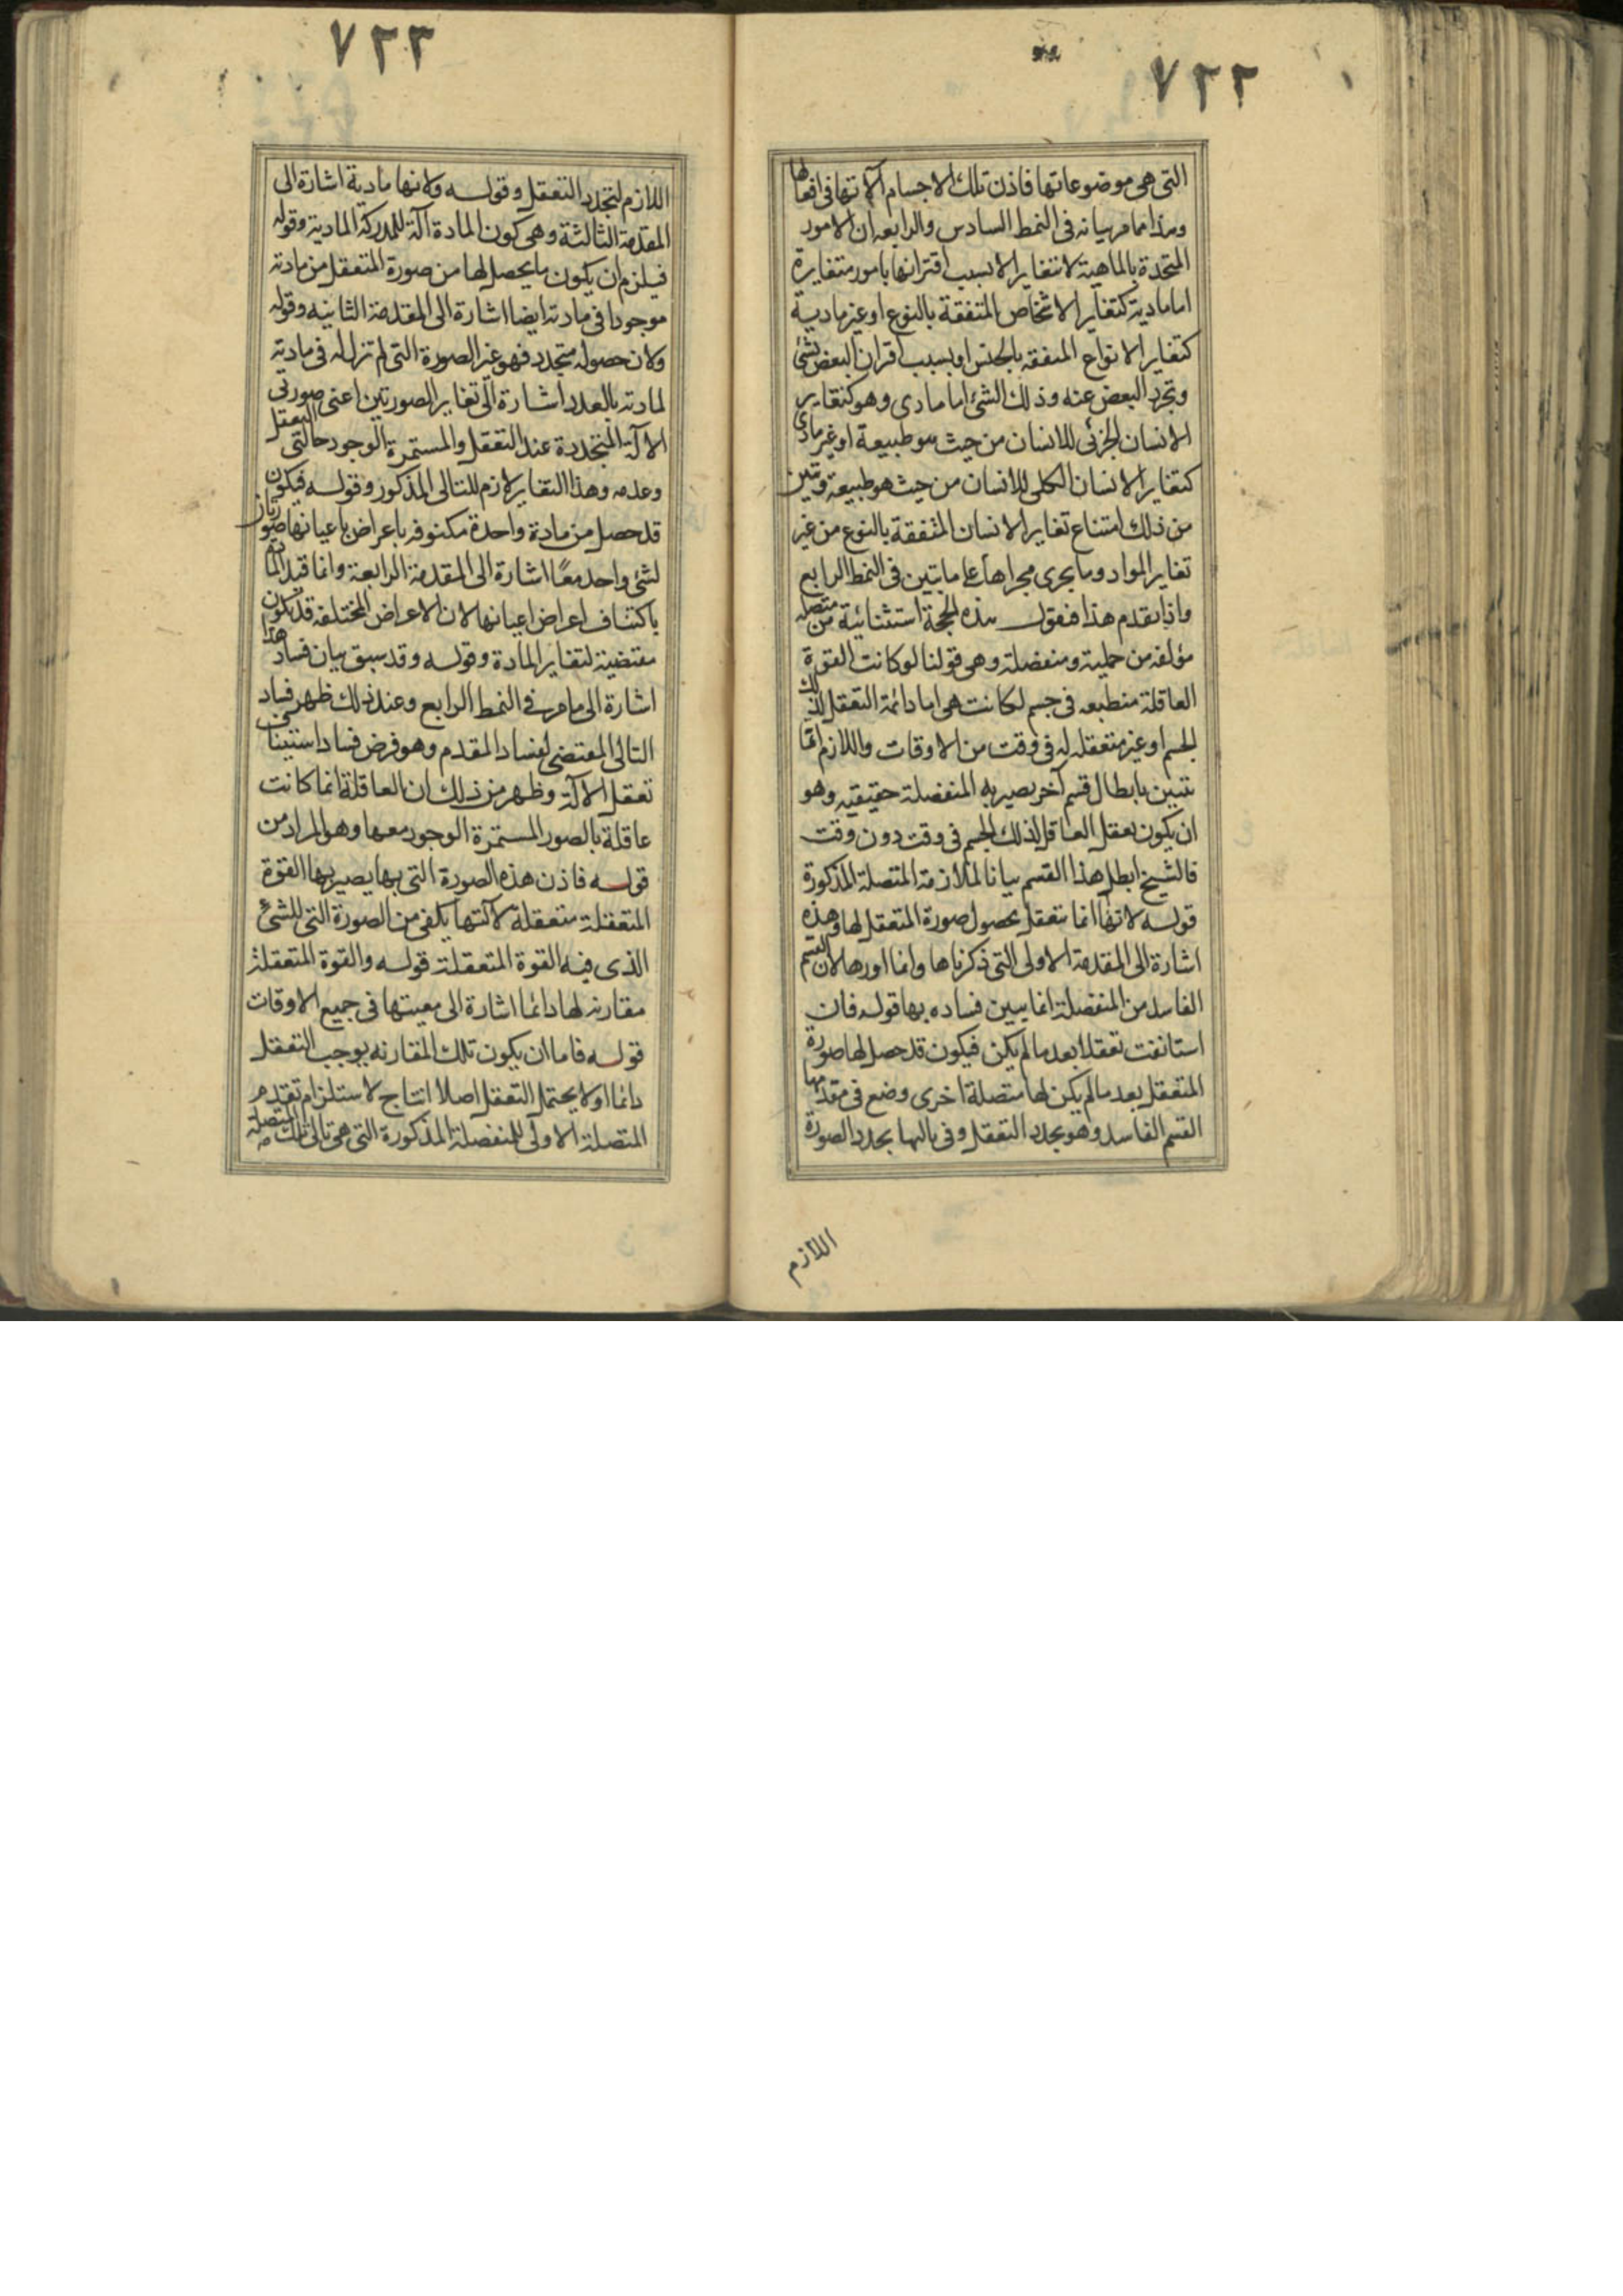 ٧٢٢
التى هى موضوعاتها فاذن تلك الاجسام آلاتها فى افعالها
وهذا مما مر بيانه فى النمط السادس والرابعه ان الامور
المتحدة بالماهية لا تتغاير الا بسبب اقترانها بامور متغايرة
اما مادية كتغاير الاشخاص المتفقة بالنوع او غير مادية
كتغاير الانواع المتفقه بالجنس او بسبب اقتران البعض بشئ
وتجرد البعض عنه وذلك الشئ اما مادى وهو كتغاير
الانسان الجزئى للانسان من حيث هو طبيعة او غير مادى
كتغاير الانسان الكلى للانسان من حيث هو طبيعة وتبين
من ذلك امتناع تغاير الانسان المتفقة بالنوع من غير
تغاير المواد وما يجرى مجراها على ما تبين فى النمط الرابع
واذا تقدم هذا فنقول هذه الحجة استثنائية من متصلة
مؤلفه من حملية ومنفصلة وهى قولنا لو كانت القوة
العاقلة منطبعه فى جسم لكانت هى اما دائمة التعقل لذلك
الجسم او غير متعقله له فى وقت من الاوقات واللازم انما
تتبين بابطال قسم آخر يصير به المنفصلة حقيقيه وهو
ان يكون تعقل العاقل لذلك الجسم فى وقت دون وقت
فالشيخ ابطل هذا القسم بيانا لملازمة المتصلة المذكورة
قوله لانها انما تتعقل بحصول صورة المتعقل لها وهذه
اشارة الى المقدمة الاولى التى ذكرناها وانما اوردها لان القسم
الفاسد من المنفصلة انما يبين فساده بها قوله فان
استانفت تعقلا بعد ما لم يكن فيكون قد حصل لها صورة
المتعقل بعد ما لم يكن لها متصلة اخرى وضع فى مقدمها
القسم الفاسد وهو تجدد التعقل وفى تاليها تجدد الصورة
اللازم
٧٢٣
اللازم لتجدد التعقل وقوله ولانها مادية اشارة الى
المقدمة الثالثة وهى كون المادة آلة للمدركة المادية وقوله
فيلزم ان يكون ما يحصل لها من صورة المتعقل من مادته
موجودا فى مادته ايضا اشارة الى المقدمة الثانيه وقوله
ولان حصوله متجدد فهو غير الصورة التى لم تزل له فى مادته
لمادته بالعدد اشارة الى تغاير الصورتين اعنى صورتى
الآلة المتجددة عند التعقل والمستمرة الوجود حالتى التعقل
وعدمه وهذا التغاير لازم للتالى المذكور وقوله فيكون
قد حصل من مادة واحدة مكنوفه باعراض باعيانها صورتان
لشئ واحد معًا اشارة الى المقدمة الرابعة وانما قيد المادة
باكتناف اعراض اعيانها لان الاعراض المختلفه قد تكون
مقتضية لتغاير المادة وقوله وقد سبق بيان فساد هذا
اشارة الى ما مر فى النمط الرابع وعند ذلك ظهر فساد
التالى المقتضى لفساد المقدم وهو فرض فساد استيناف
تعقل الآلة وظهر من ذلك ان العاقلة انما كانت
عاقلة بالصور المستمرة الوجود معها وهو المراد من
قوله فاذن هذه الصورة التى بها يصير بها القوة
المتعقلة متعقلة لآلتها يكفى من الصورة التى للشئ
الذى فيه القوة المتعقلة قوله والقوة المتعقلة
مقارنه لها دائما اشارة الى معيتها فى جميع الاوقات
قوله فاما ان يكون تلك المقارنه يوجب التعقل
دائما او لا يحتمل التعقل اصلا انتاج لاستلزام تقدم
المتصلة الاولى للمنفصلة المذكورة التى هى تالى تلك المتصلة